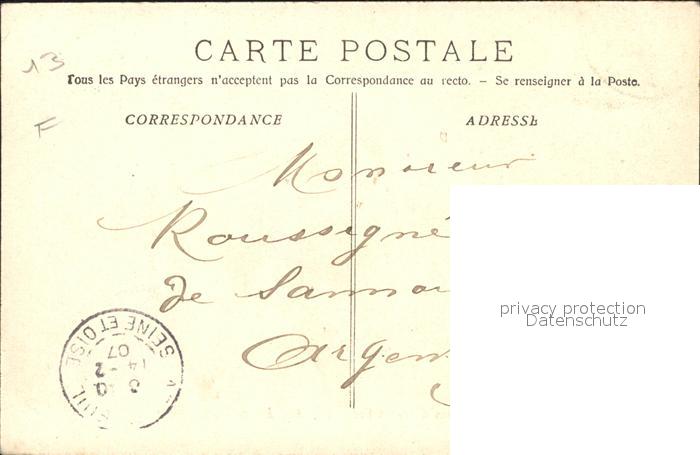 CARTE POSTALE
Tous les Pays étrangers n'acceptent pas la Correspondance au recto. – Se renseigner à la Poste.
CORRESPONDANCE
ADRESSE
13
F
Monsieur
Roussigné
de Sanno
Argen
privacy protection
Datenschutz
SEINE ET OISE
14 -2
07